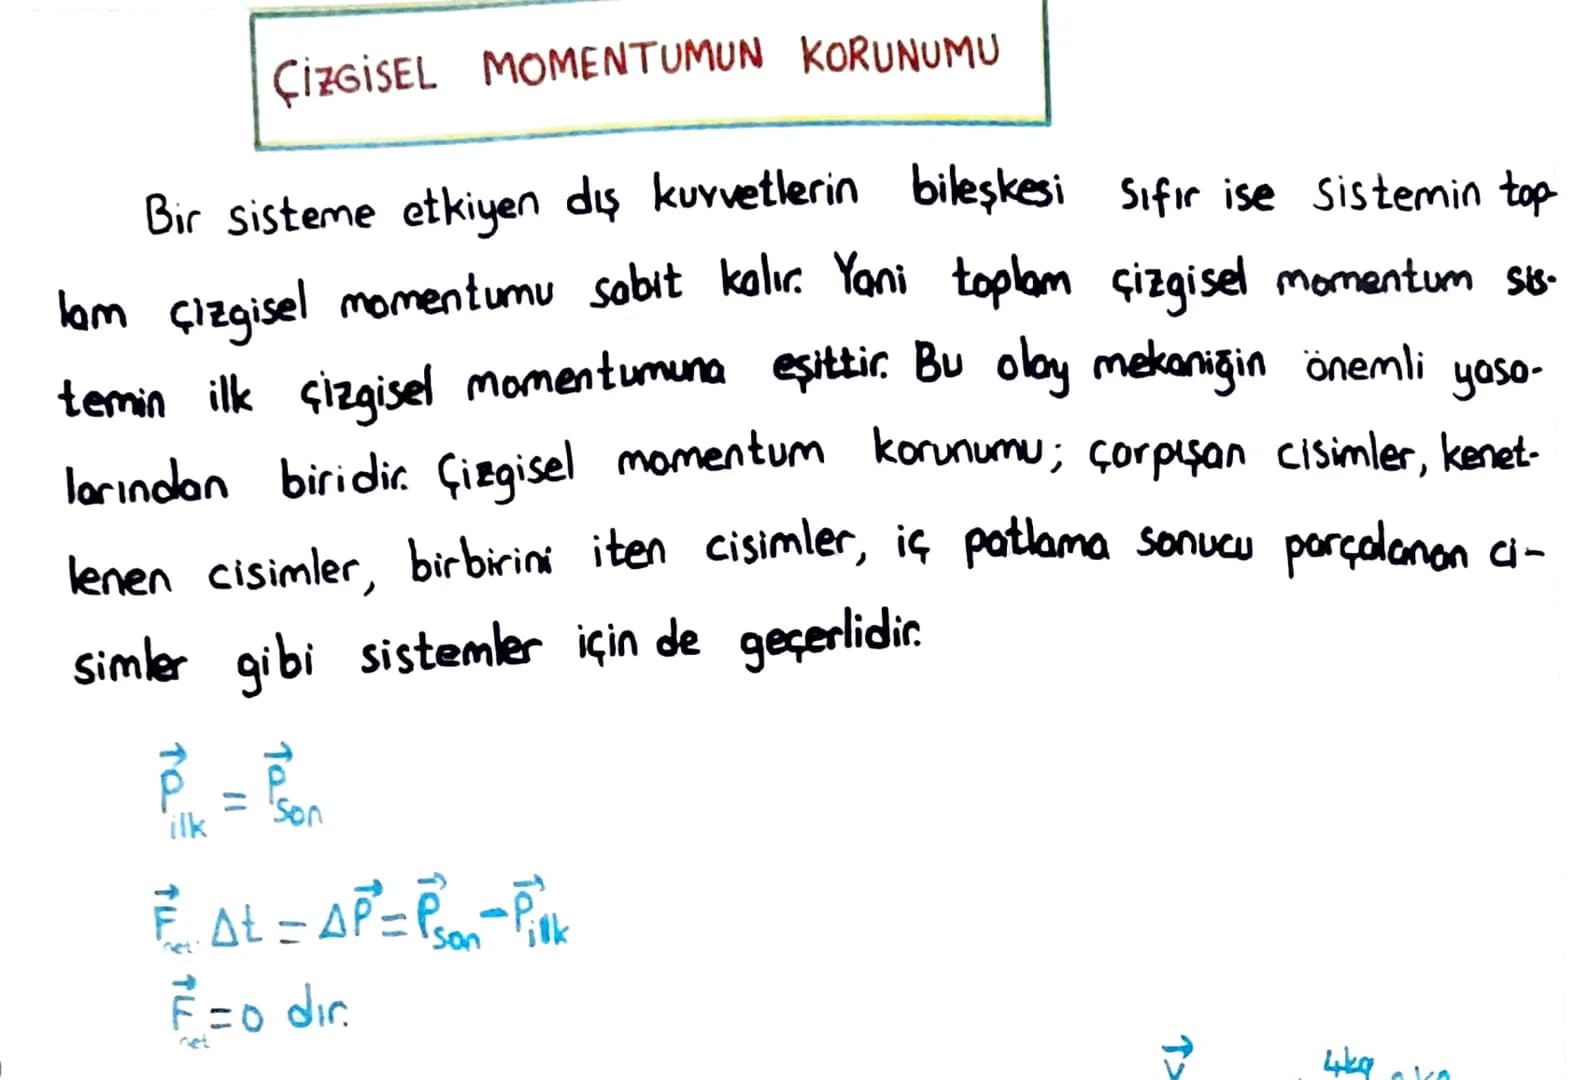 ÇİZGİSEL MOMENTUMUN KORUNUMU
Bir sisteme etkiyen dış kuvvetlerin bileşkesi sıfır ise sistemin top
lam çizgisel momentumu sabit kalır. Yani toplam çizgisel momentum sis-
temin ilk çizgisel momentumuna eşittir. Bu olay mekaniğin önemli yasa-
larından biridir. Çizgisel momentum korunumu; çarpışan cisimler, kenet-
lenen cisimler, birbirini iten cisimler, iç patlama sonucu parçalanan ci-
simler gibi sistemler için de geçerlidir.
P⃗ilk = P⃗son
F⃗net. Δt = ΔP⃗ = P⃗son - P⃗ilk
F⃗net = 0 dır.
V⃗ 4kg